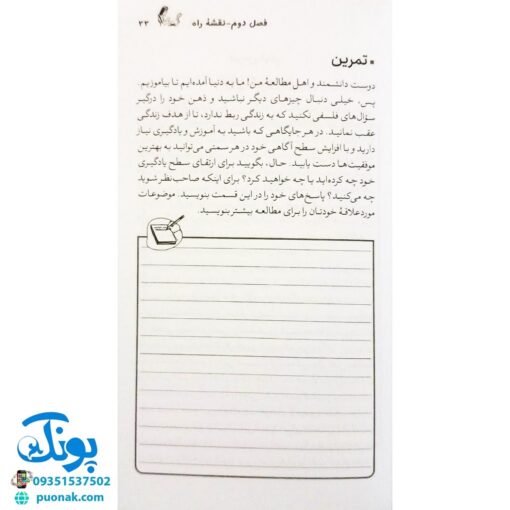 فصل دوم-نقشهٔ راه ۳۳
تمرین
دوست دانشمند و اهل مطالعهٔ من! ما به دنیا آمده‌ایم تا بیاموزیم.
پس، خیلی دنبال چیزهای دیگر نباشید و ذهن خود را درگیر
سؤال‌های فلسفی نکنید که به زندگی ربط ندارد، تا از هدف زندگی
عقب نمانید. در هر جایگاهی که باشید به آموزش و یادگیری نیاز
دارید و با افزایش سطح آگاهی خود در هر سمتی می‌توانید به بهترین
موفقیت‌ها دست یابید. حال، بگویید برای ارتقای سطح یادگیری
خود چه کرده‌اید یا چه خواهید کرد؟ برای اینکه صاحب‌نظر شوید
چه می‌کنید؟ پاسخ‌های خود را در این قسمت بنویسید. موضوعات
مورد علاقهٔ خودتان را برای مطالعه بیشتر بنویسید.
پونک
09351537502
puonak.com